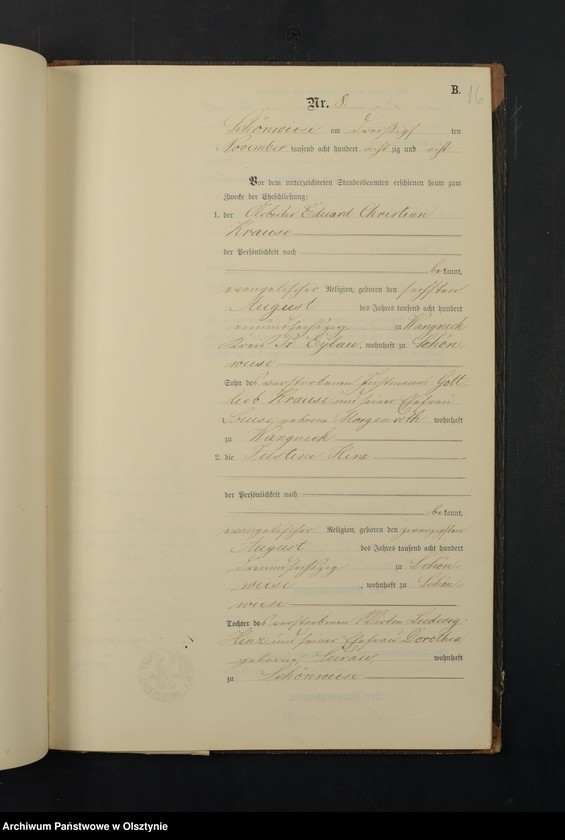 B.
16
Nr. 8.
Schönwiese am dreißigsten
November tausend acht hundert achtzig und acht
Vor dem unterzeichneten Standesbeamten erschienen heute zum
Zwecke der Eheschließung:
1. der Arbeiter Eduard Christian
Krause
der Persönlichkeit nach
bekannt,
evangelischer Religion, geboren den sechsten
August des Jahres tausend acht hundert
zu Wangnick
Kreis Pr. Eylau, wohnhaft zu Schön
wiese
Sohn des verstorbenen Gott
lieb Krause und seiner Ehefrau
Louise geborene Morgenroth wohnhaft
zu Wangnick
2. die Justine Hinz
der Persönlichkeit nach
bekannt,
evangelischer Religion, geboren den zwanzigsten
August des Jahres tausend acht hundert
zu Schön
wiese, wohnhaft zu Schön
wiese
Tochter des verstorbenen Ludwig
Hinz und seiner Ehefrau Dorothea
geborene wohnhaft
zu Schönwiese
Archiwum Państwowe w Olsztynie